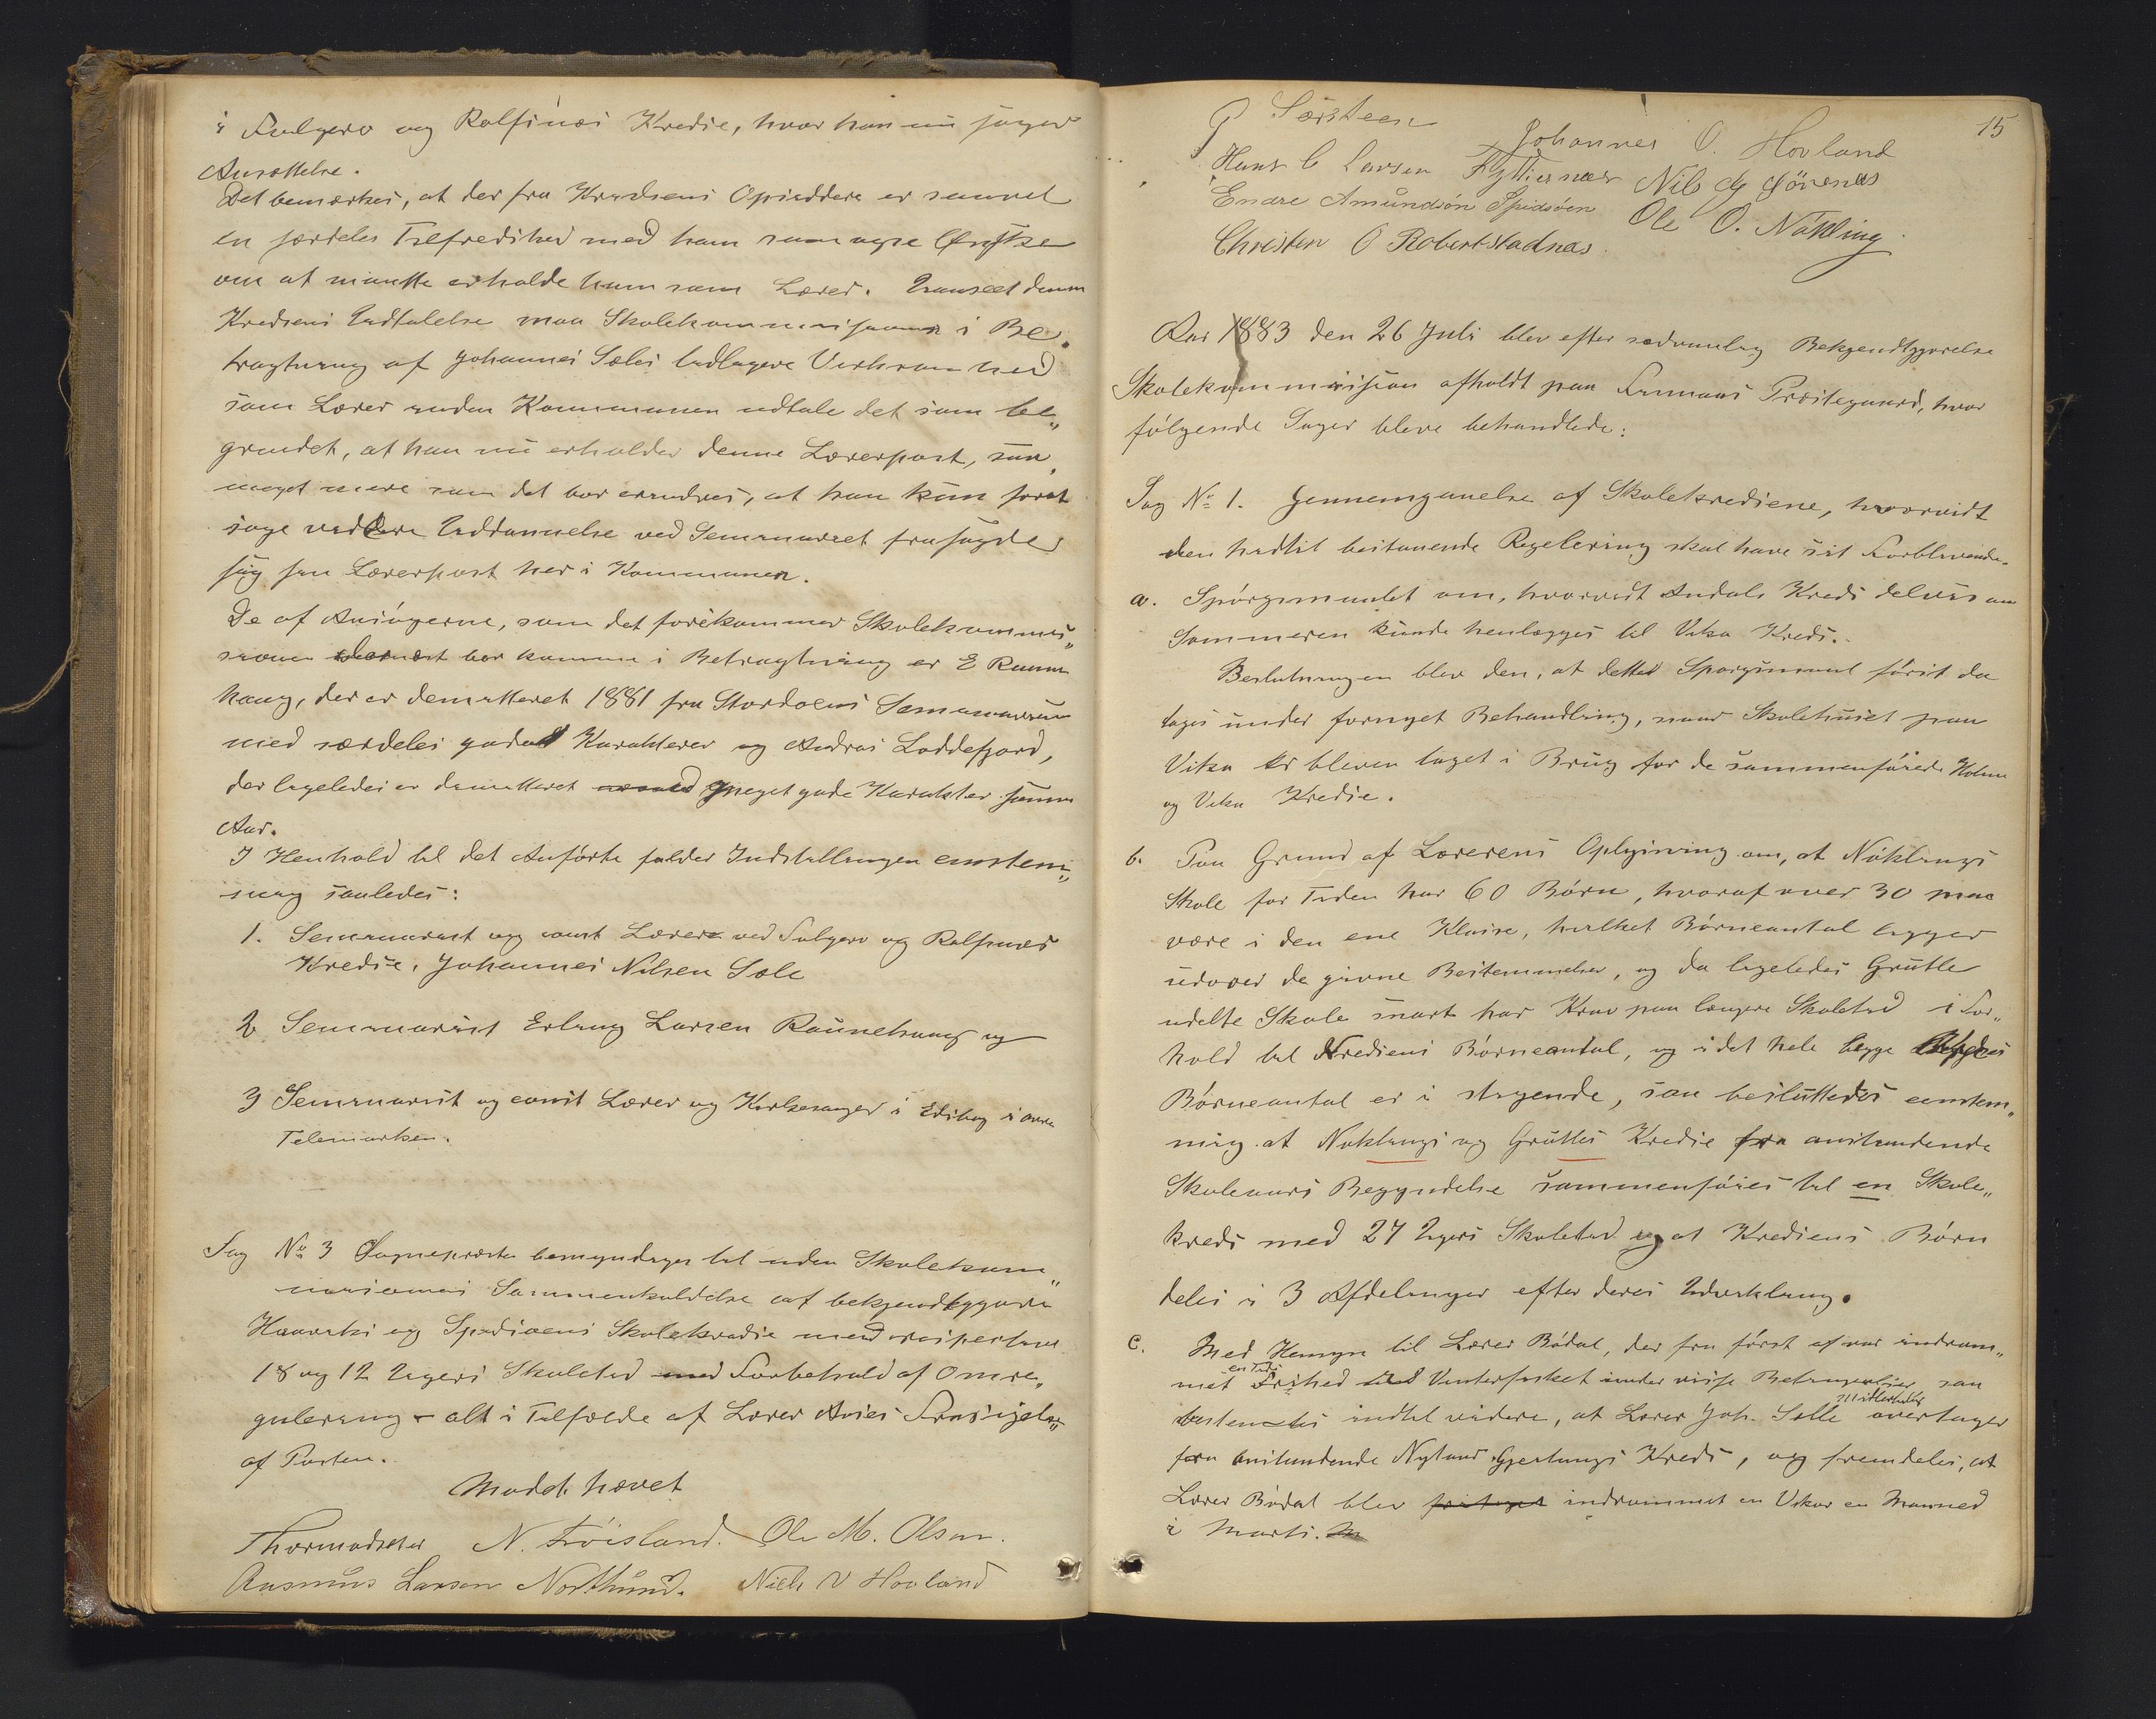 i Fulgerø og Rolfsnæs Kredse, hvor han nu søger
Ansættelse.
Det bemærkes, at der fra Kredsens Opsiddere er
en særdeles Tilfredshed med ham samt ogsaa Ønske
om at maatte erholde ham som Lærer. Uanseet denne
Kredsens Udtalelse maa Skolekommissionen i Be„
tragtning af Johannes Sæles tidligere Virksomhed
som Lærer inden Kommunen udtale det som be„
grundet, at han nu erholder denne Lærerpost, saa
meget mere som det bør erindres, at han kun for at
søge videre Uddannelse ved Seminariet frasagde
sig sin Lærerpost her i Kommunen.
De af Ansøgerne, som det forekommer Skolekommis„
sionen dernæst bør komme i Betragtning er E Raune
haug, der er demitteret 1881 fra Stordøens Seminarium
med særdeles gode Karakterer og Andreas Loddefjord,
der ligeledes er demitteret med meget gode Karakter samme
Aar.
I Henhold til det Anførte falder Indstillingen eenstem„
mig saaledes:
1. Seminarist og const Lærer ved Fulgerø og Rolfsnæs
Kredse, Johannes Nilsen Sæle
2 Seminarist Erling Larsen Raunehaug og
3 Seminarist og const Lærer og Kirkesanger i i øvre
Telemarken.
Sag No 3 Sognepræsten bemyndiges til uden Skolekom„
missionens Sammenkaldelse at bekjendtgjøre
Haavisks og Spidsøens Skolekredse med respektive
18 og 12 Ugers Skoletid med Forbehold af Omre„
gulering – alt i Tilfælde af Lærer Aases Frasigelse
af Posten.
Mødet hævet
Thormodsæter N. Frøisland. Ole M. Olsen.
Rasmus Larsen Northund. Niels N Hovland
15
P Sørsteen Johannes O. Hovland
Hans C Larsen Fylliesnæs Nils Sönenæs
Endre Amundsön Spidsöen Ole O. Nökling
Christen O Robertstadnæs.
Aar 1883 den 26 Juli blev efter sædvanlig Bekjendtgjørelse
Skolekommission afholdt paa Finnaas Præstegaard, hvor
følgende Sager bleve behandlede:
Sag No 1. Gjennemgaaelse af Skolekredsene, hvorvidt
den hidtil bestaaende Regulering skal have sit Forblivende.
a. Spørgsmaalet om, hvorvidt Andals Kreds delvis om
Sommeren kunde henlægges til Vika Kreds.
Beslutningen blev den, at dette Spørgsmaal først da
tages under fornyet Behandling, naar Skolehuset paa
Vika er bleven taget i Brug for de sammenførede Holme
og Vika Kredse.
b. Paa Grund af Lærerens Oplysning om, at Nöklings
Skole for Tiden har 60 Børn, hvoraf over 30 maa
være i den ene Klasse, hvilket Børneantal ligger
udover de givne Bestemmelser, og da ligeledes Grutle
udelte Skole snart har Krav paa længere Skoletid i For„
hold til Kredsens Børneantal, og i det hele begge Kredses
Børneantal er i stigende, saa besluttedes eenstem„
mig at Nøklings og Gruttes Kredse fra anstundende
Skoleaars Begyndelse sammenføres til en Skole„
kreds med 27 Ugers Skoletid og at Kredsens Børn
deles i 3 Afdelinger efter deres Udvikling.
c. Med Hensyn til Lærer Bödal, der fra først af var indrøm„
met en Tids Frihed til Vinterfisket under visse Betingelser, saa
bestemtes indtil videre, at Lærer Joh. Sælle midlertidig overtager
fra anstundende Nytaar Gjerlings Kreds, og fremdeles, at
Lærer Bödal blev fritaget indrømmet en Vikar en Maaned
i Marts.